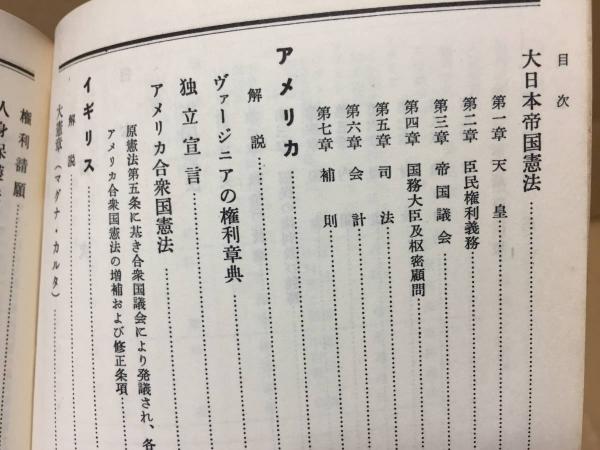 目次
大日本帝国憲法
第一章 天皇
第二章 臣民権利義務
第三章 帝国議会
第四章 国務大臣及枢密顧問
第五章 司法
第六章 会計
第七章 補則
アメリカ
解説
ヴァージニアの権利章典
独立宣言
アメリカ合衆国憲法
原憲法第五条に基き合衆国議会により発議され、各
アメリカ合衆国憲法の増補および修正条項
イギリス
解説
大憲章（マグナ・カルタ）
権利請願
人身保護